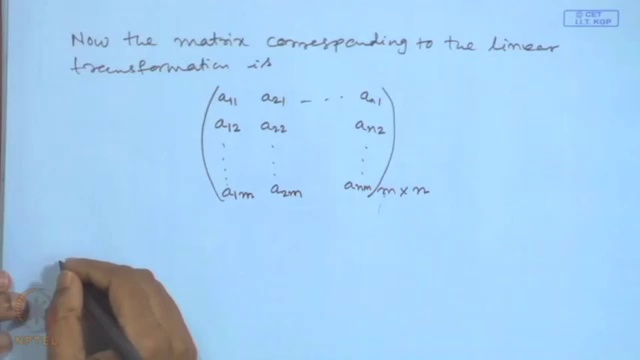 © CET
I.I.T. KGP
Now the matrix corresponding to the linear
transformation is
a11 a21 - ... an1
a12 a22 an2
a1m a2m anm m×n
NPTEL